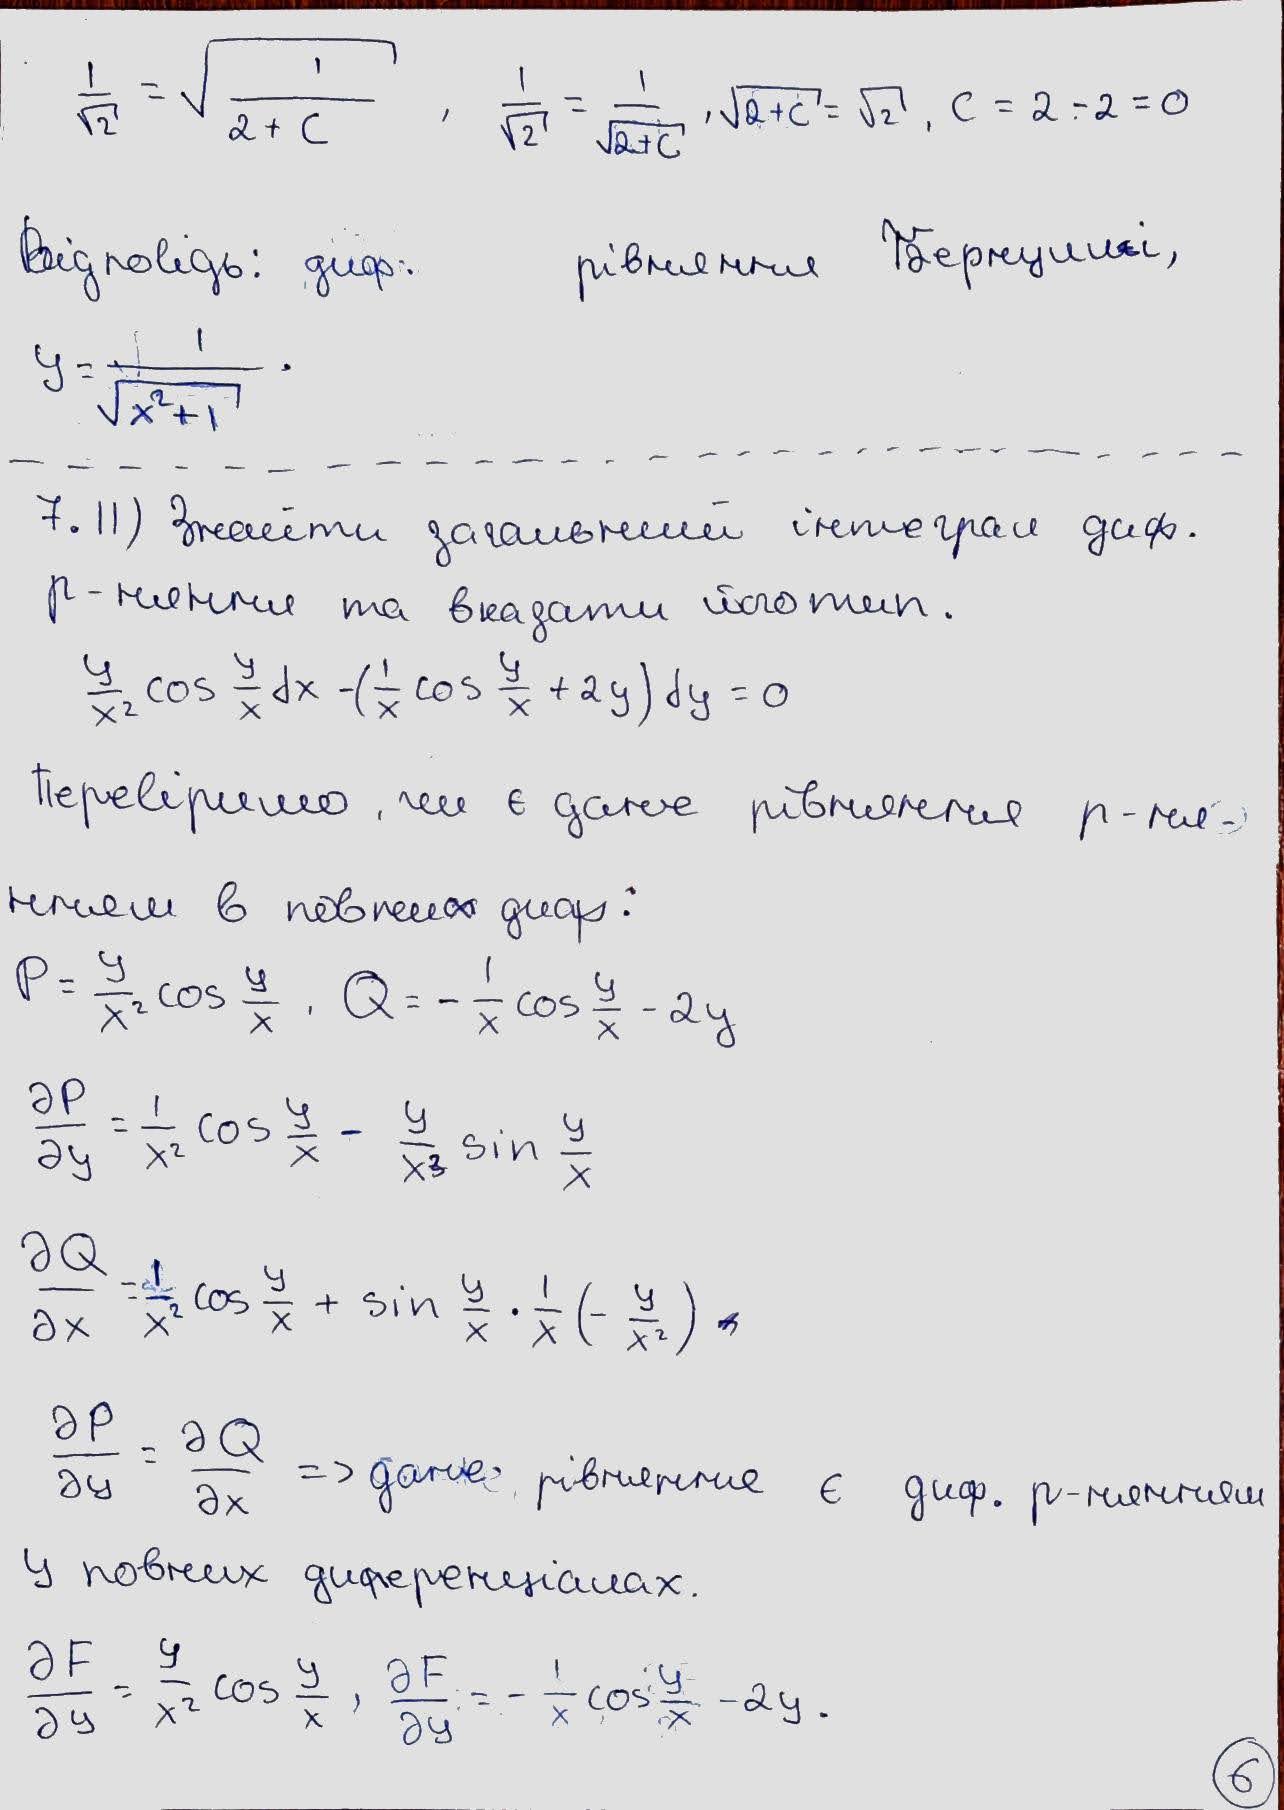 1/√2 = √(1/(2+C)) , 1/√2 = 1/√(2+C) , √(2+C) = √2 , C = 2 - 2 = 0
Відповідь: диф. рівняння Бернуллі,
y = 1/√(x²+1) .
7.11) Знайти загальний інтеграл диф.
р-няння та вказати його тип.
y/x² cos y/x dx - (1/x cos y/x + 2y) dy = 0
Перевіримо, чи є дане рівняння р-ня-
нням в повних диф:
P = y/x² cos y/x , Q = - 1/x cos y/x - 2y
∂P/∂y = 1/x² cos y/x - y/x³ sin y/x
∂Q/∂x = 1/x² cos y/x + sin y/x · 1/x (- y/x²)
∂P/∂y = ∂Q/∂x => дане рівняння є диф. р-нянням
у повних диференціалах.
∂F/∂y = y/x² cos y/x , ∂F/∂y = - 1/x cos y/x - 2y .
6